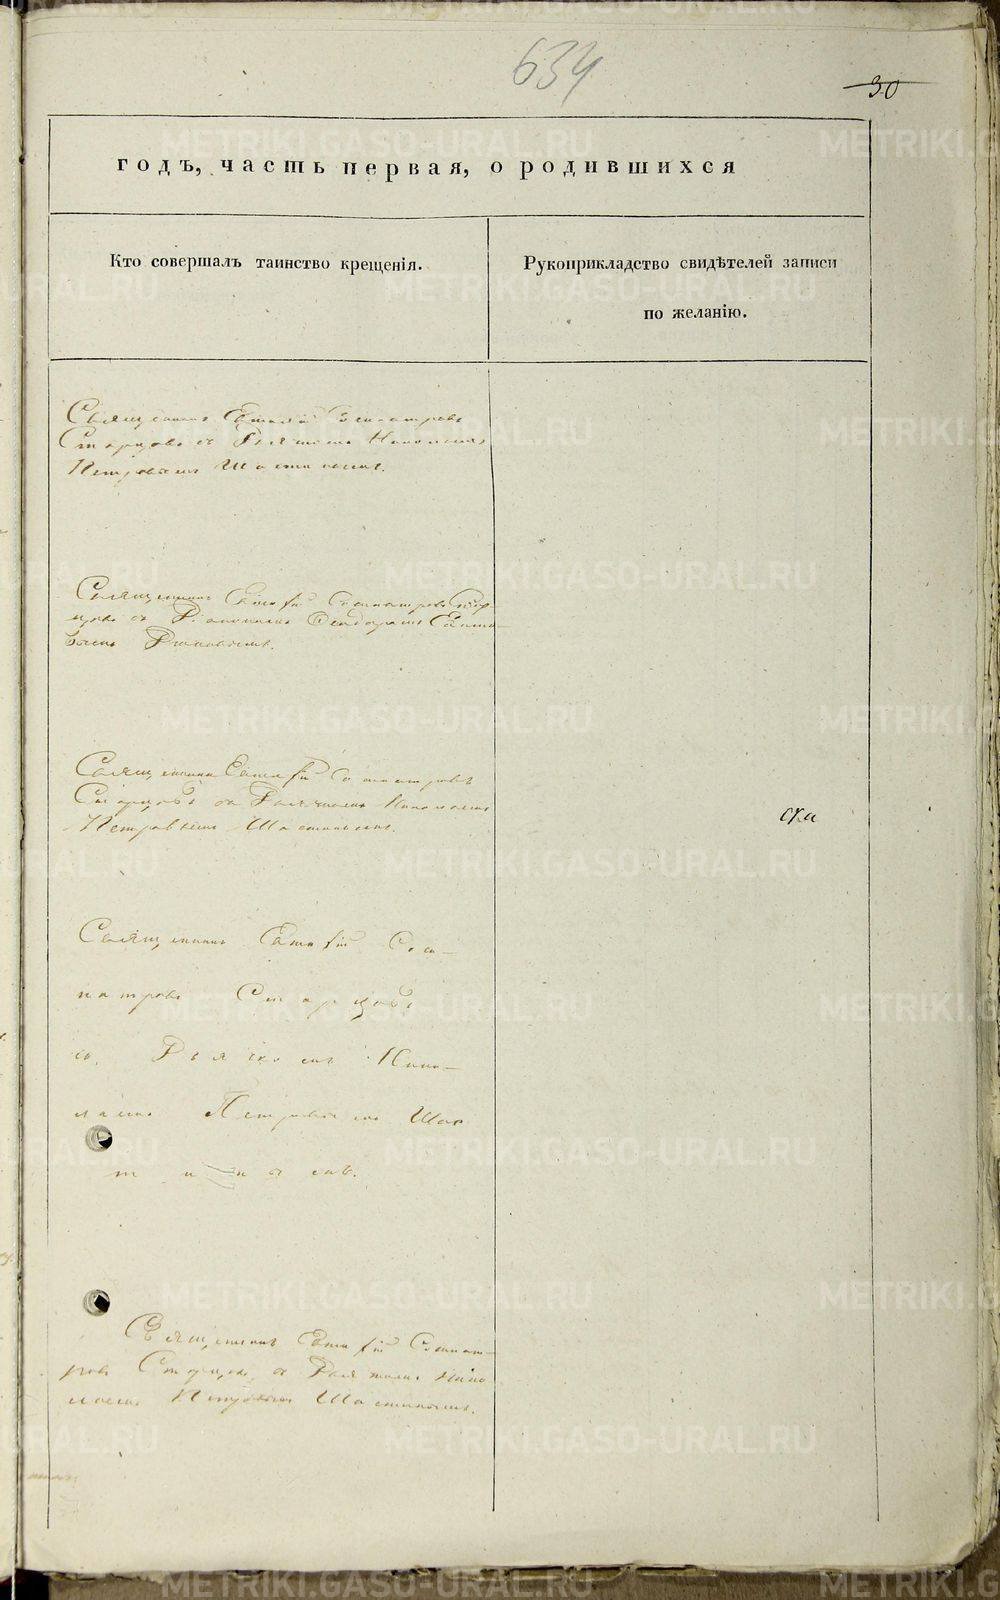 634
30
годъ, часть первая, о родившихся
Кто совершалъ таинство крещенія.
Рукоприкладство свидѣтелей записи
по желанію.
Священникъ Евтихій Сосипатровъ
Старцовъ съ Дьячкомъ Николаемъ
Петровымъ Шастинымъ.
Священникъ Евтихій Сосипатровъ Стар-
цовъ съ
Священникъ Евтихій Сосипатровъ
Старцовъ съ Дьячкомъ Николаемъ
Петровымъ Шастинымъ.
Священникъ Евтихій Соси-
патровъ Старцовъ
съ Дьячкомъ Нико-
лаемъ Петровымъ Шас
тинымъ.
Священникъ Евтихій Сосипат-
ровъ Старцовъ съ Дьячкомъ Нико
лаемъ Петровымъ Шастинымъ.
METRIKI.GASO-URAL.RU